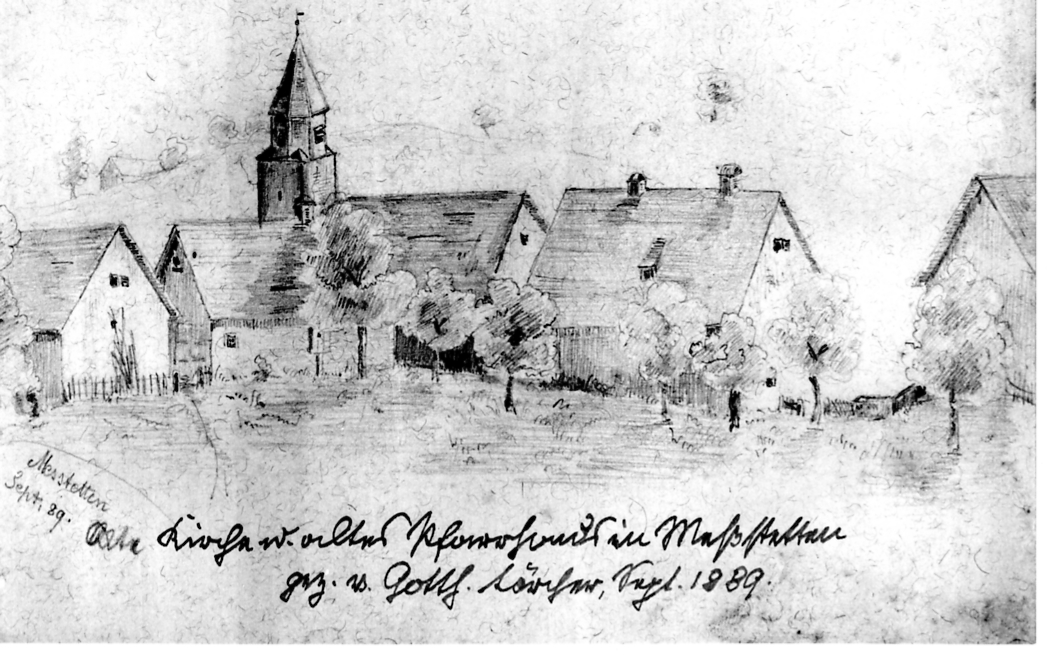 Messtetten
Sept. 89.
Alte Kirche u. altes Pfarrhaus in Meßstetten
gez. v. Gotth. Lörcher, Sept. 1889.